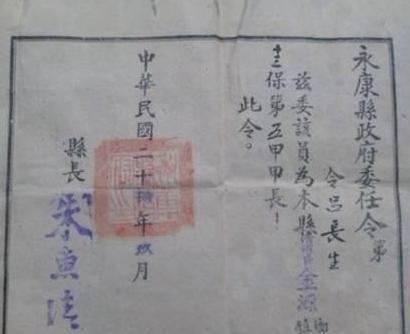 永康縣政府委任令 第
令呂長生
茲委該員為本縣金源鄉鎮
十三保第五甲甲長！
此令。
中華民國二十 年 玖月
縣長 朱惠清